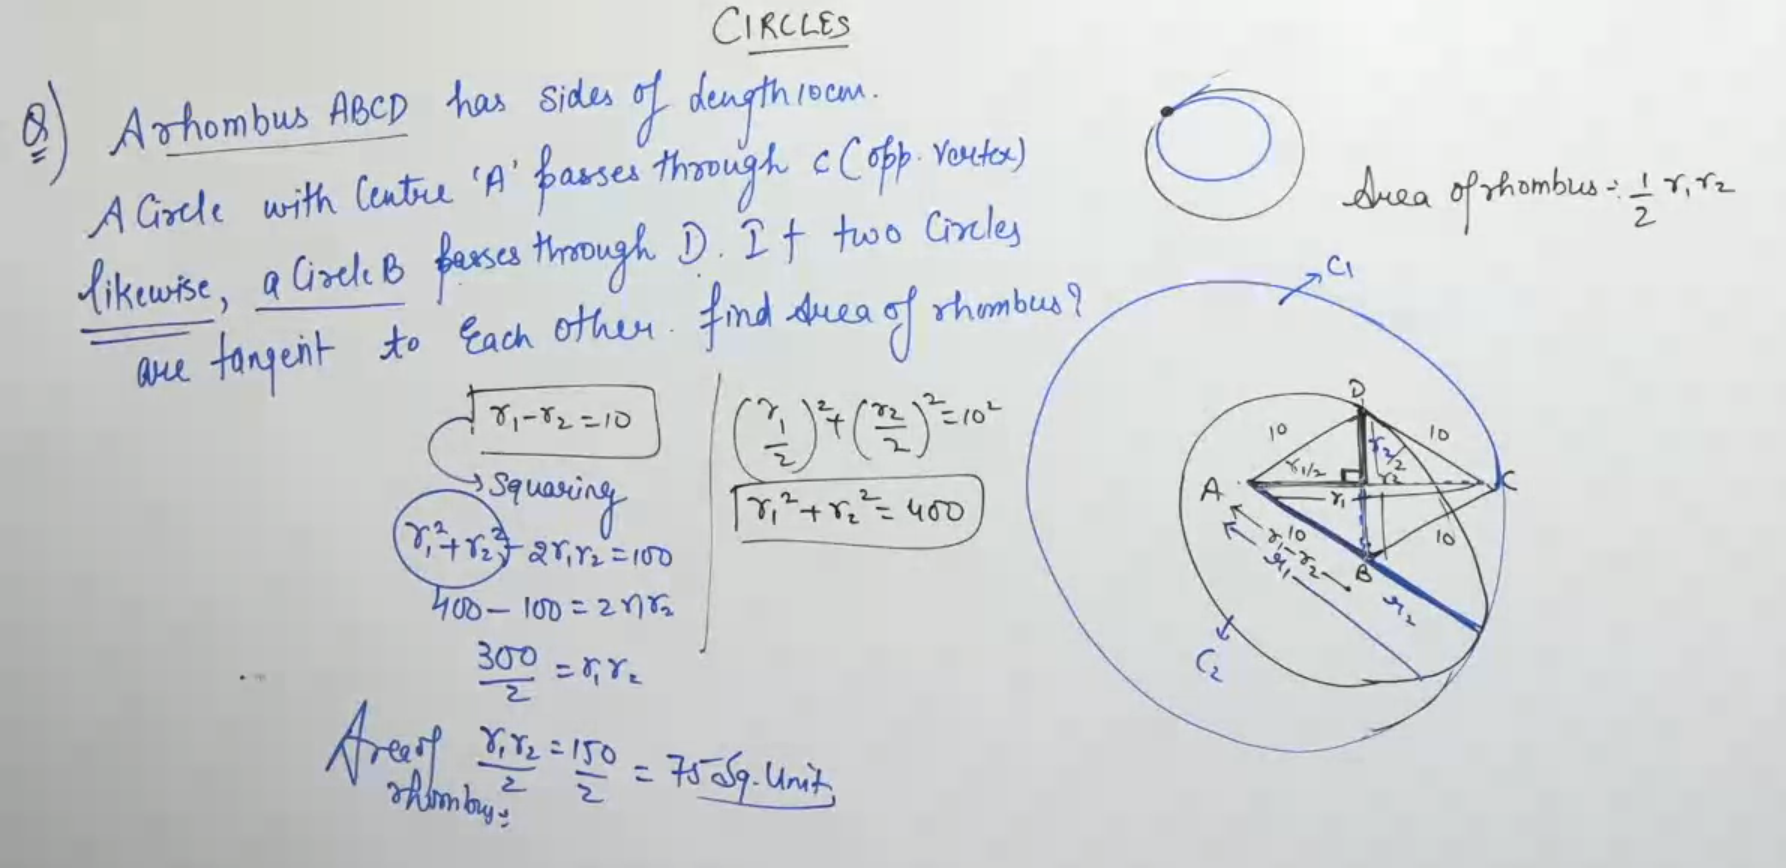 CIRCLES
Q) A rhombus ABCD has sides of length 10cm.
A Circle with Centre 'A' passes through C (opp. Vertex)
likewise, a Circle B passes through D. If two Circles
are tangent to Each other. find Area of rhombus?
Area of rhombus = 1/2 r₁r₂
r₁-r₂=10
Squaring
r₁²+r₂²-2r₁r₂=100
400-100=2r₁r₂
300/2=r₁r₂
Area of rhombus= r₁r₂/2=150/2=75 Sq. Unit
(r₁/2)²+(r₂/2)²=10²
r₁²+r₂²=400
C₁
D
10
10
r₁/2
r₂/2
r₂
A
C
r₁
10
10
r₁-r₂
B
r₁
r₂
C₂